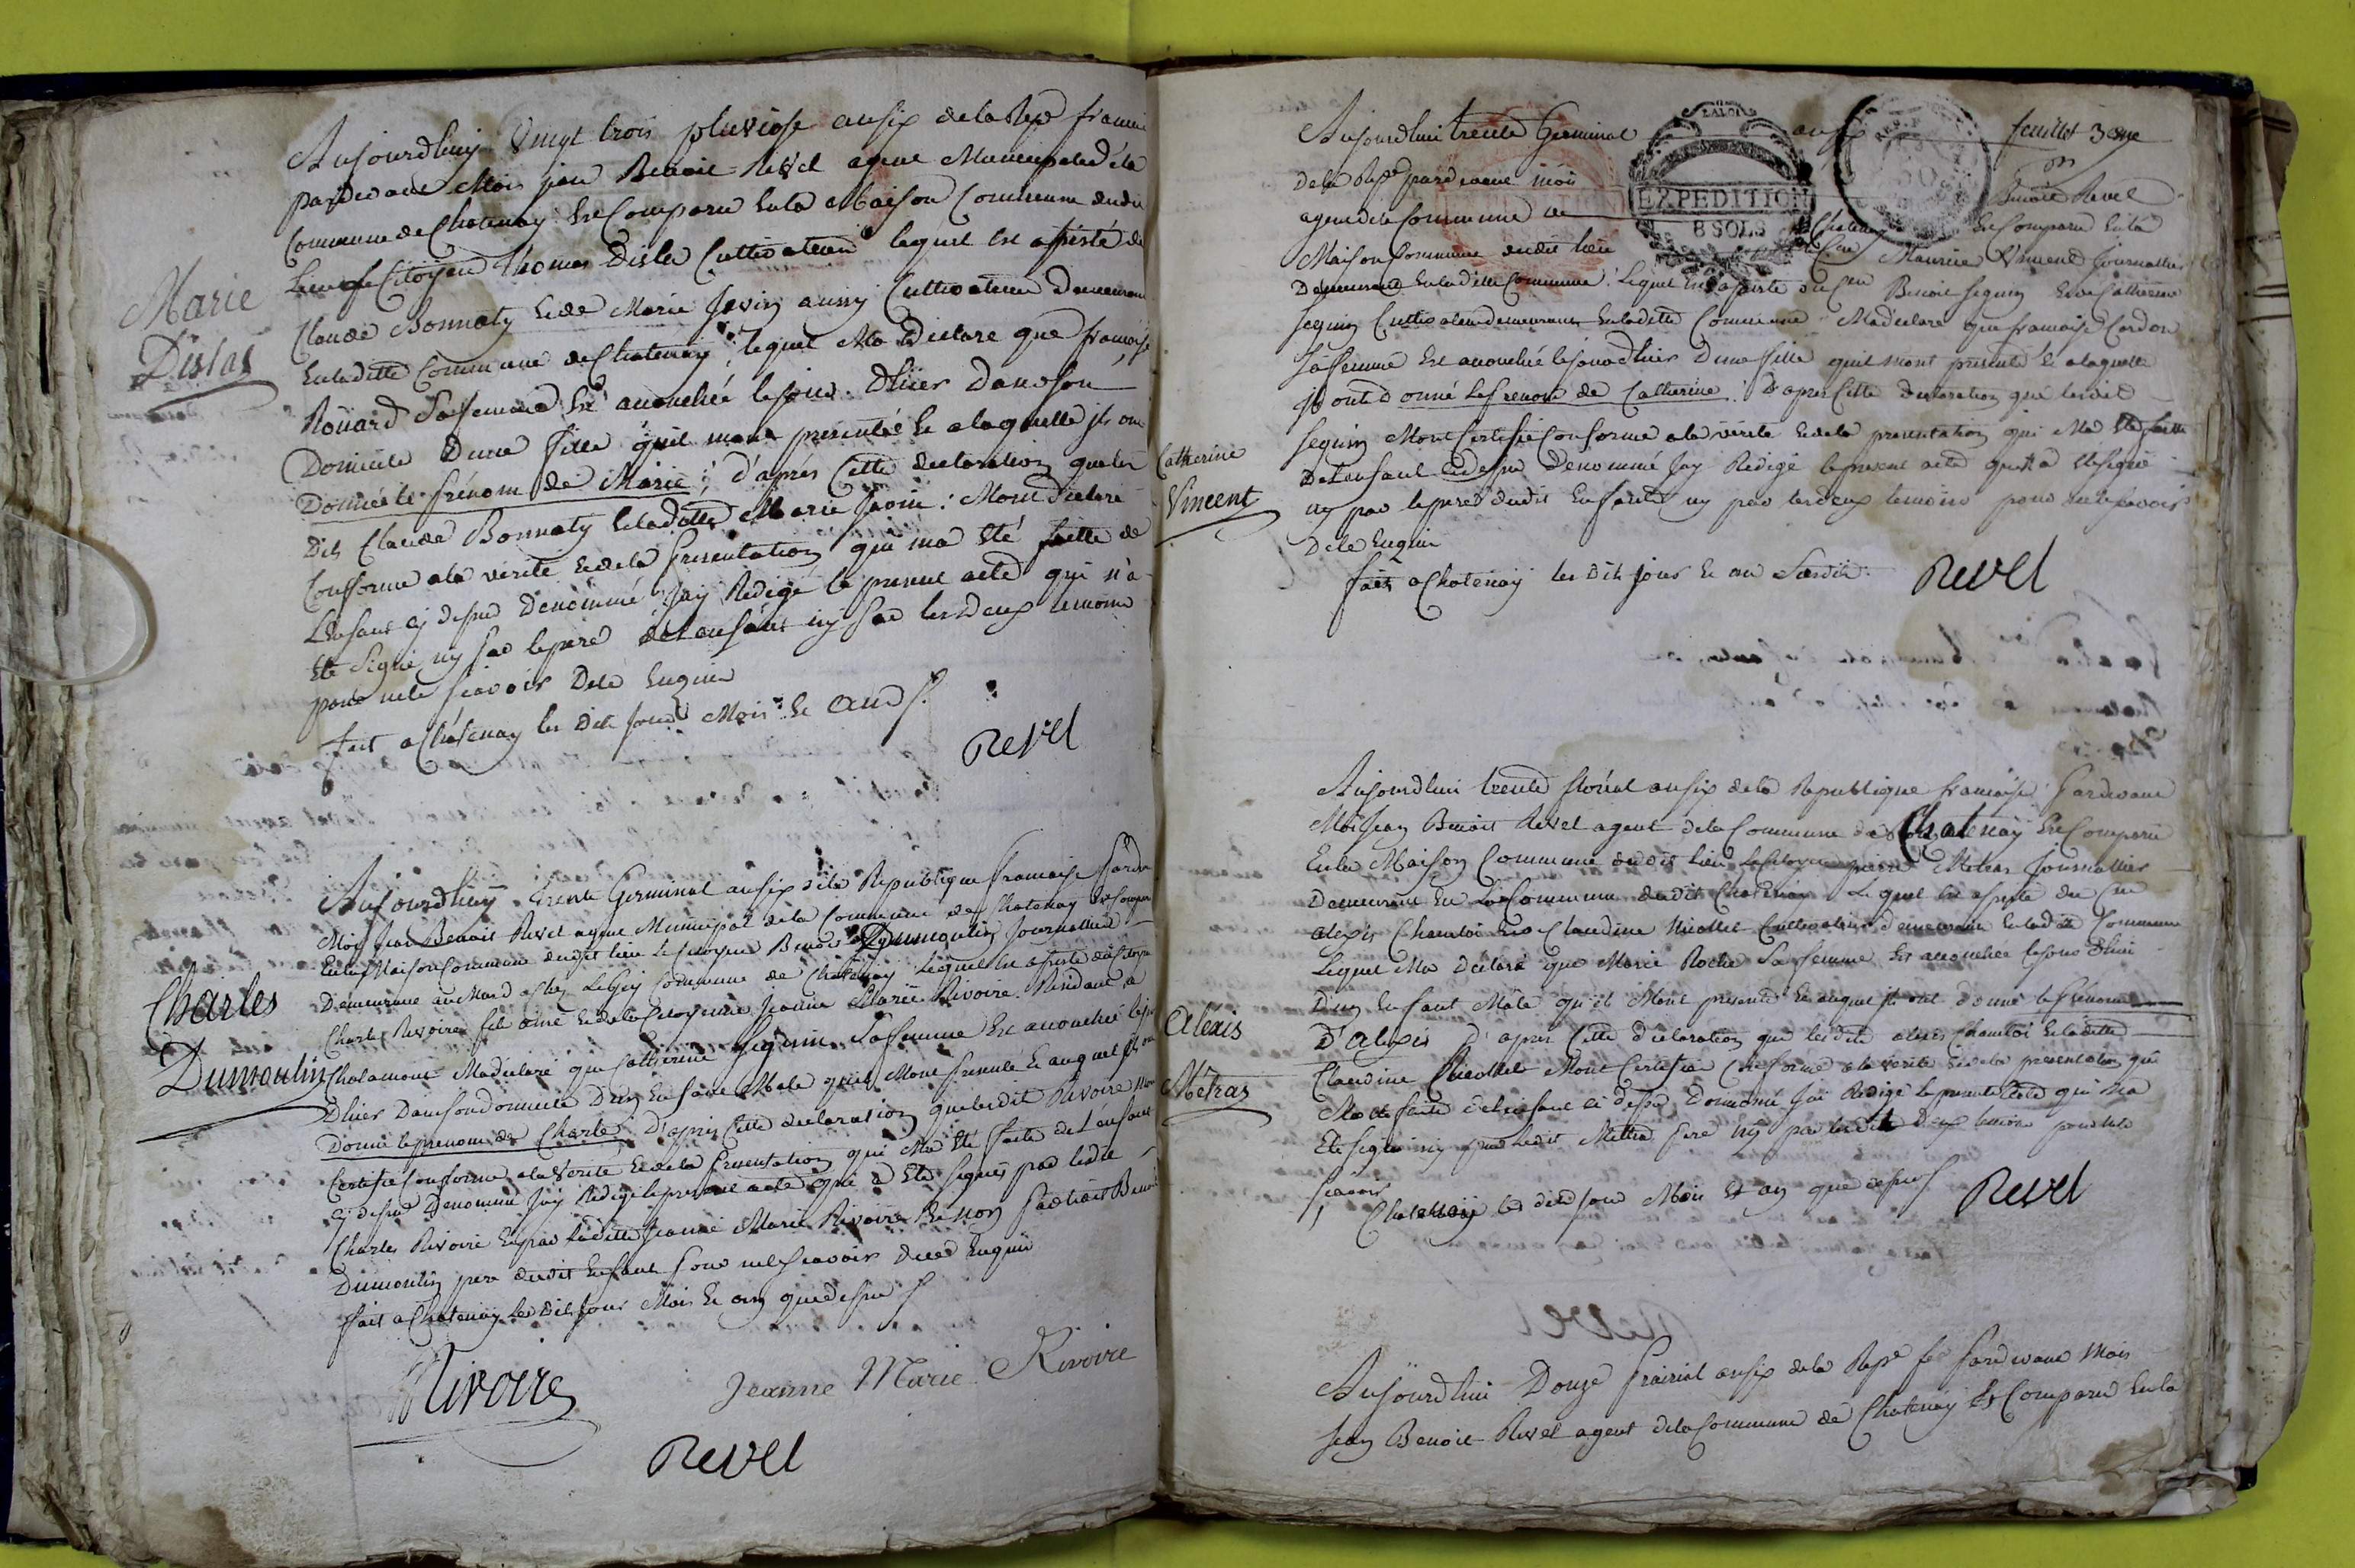 Aujourdhuy vingt trois pluviose an six de la Rep. francoi
pardevant Moi jean Benoit Revel agent Municipal de la
Commune de Chatenay Est Comparu En la Maison Commune dudit
Lieu le Citoyen Thomas Dislas Cultivateur lequel Est assisté de
Claude Bonnaty Et de Marie Jvin aussy Cultivateur demeurant
Marie
Dislas
En laditte Commune de Chatenay lequel Ma Déclaré que francoise
Roüard Sa femme Est accouchée le jour Dhier Dans son
Domicile D'une fille quil mont presentée Et alaquelle ils ont
Donnée le frénom de Marie ; d'aprés Cette declaration que les
Dits Claude Bonnaty Et la ditte Marie Jvoin : Mont déclaré
Conforme a la vérité Et de la presentation qui ma Eté faitte de
Lenfant cy dessus Denommé Jay Redigé le present acte qui n'a
Eté Signé ny par le pere de Lenfant ny par les deux temoins
pour ne le scavoir De Ce Enquis
fait a Châtenay les dits jour Mois Et and s.
Revel
Aujourdhuy trente Germinal an six de la Republique francoise pardev
Moi Jean Benoit Revel agent Municipal de la Commune de Chatenay Est Compar
En la Maison Commune dudit lieu le Citoyen Benoit Dumoulin Journallier
Demeurant au Chez Commune de Chatenay Lequel Est assisté du Citoyen
Charles
Dumoulin
Charles Rivoire fils ainé Et de la Citoyenne Jeanne Marie Rivoire Residant a
Chalamont Ma declaré que Catherine Seguin Sa femme Est accouchée le jour
Dhier Dans son domicile D'un Enfant Male quil Mont presenté Et auquel ils ont
Donné le prenom de Charle D'apris Cette declaration que lesdit Rivoire Mon
Certifie Conforme a la Verité Et de la presentation qui Ma Eté faitte de L'enfant
Cy dessus Denommé Jay Redigé le present acte qui a Eté Signés par ledit
Charles Rivoire Et par laditte Jeanne Marie Rivoire Et non par ledit Benoit
Dumoulin pere dudit Enfant pour ne le Scavoir De ce Enquis
fait a Chatenay les dits Jour Mois Et an que dessus
Rivoire
Jeanne Marie Rivoire
Revel
Aujourdhui trente Germinal an six feuillet 3eme
de la Repe pardevant moi Benoit Revel
agent de la Commune de Chatenay Est Comparu En la
Maison Commune dudit lieu le Cen Maurice Vincent Journallier
LA LOI
EXPEDITION
8 SOLS
Demeurant En la ditte Commune Lequel Est assisté du Cen Benoit Seguin Et de Catherine
Seguin Cultivateur demeurants En la ditte Commune Ma declaré que francoise Cordon
Sa femme Est accouchée le jour dhier D'une fille quil mont presentée Et alaquelle
ils ont donné le frenom de Catherine D'apres Cette declaration que lesdits
Catherine
Vincent
Seguin Mont Certifié Conforme a la vérité Et de la presentation qui Ma Eté faitte
De L'enfant Cy dessus Denommé Jay Redigé le present acte qui n'a Eté Signé
ny par le pere dudit Enfant ny par les deux temoins pour ne le scavoir
De Ce Enquis
fait a Chatenay les dits jour Et an Susdits
Revel
Aujourdhui trente floréal an six de la Republique francaise Pardevant
Moi Jean Benoit Revel agent de la Commune de Chatenay Est Comparu
En la Maison Commune dudit lieu le Citoyen pierre Metras Journallier
Demeurant En La Commune dudit Chatenay Lequel Est assisté du Cen
alexis Chamloi Et de Claudine Nicollet Cultivateurs demeurant En ladite Commune
Lequel Ma Declaré que Marie Roche Sa femme Est accouchée le jour dhier
D'un Enfant Mâle qu'il Mont presenté Et auquel ils ont donné le frénom
Alexis
Métras
D'Alexis D'apres Cette Declaration que lesdits alexis Chamloi Et laditte
Claudine Nicollet Mont Certifié Conforme a la verité Et de la presentation qui
Ma Eté faite de L'enfant ci dessus Denommé Jai Redigé le present acte qui N'a
Eté Signé ny par ledit Mettra pere ny par lesdits Deux temoins pour ne le
Scavoir
Chatenaÿ les dits jour Mois Et an que dessus
Revel
Aujourdhui Douze prairial an six de la Repe fr pardevant Moi
Jean Benoit Revel agent de la Commune de Chatenay Est Comparu En la